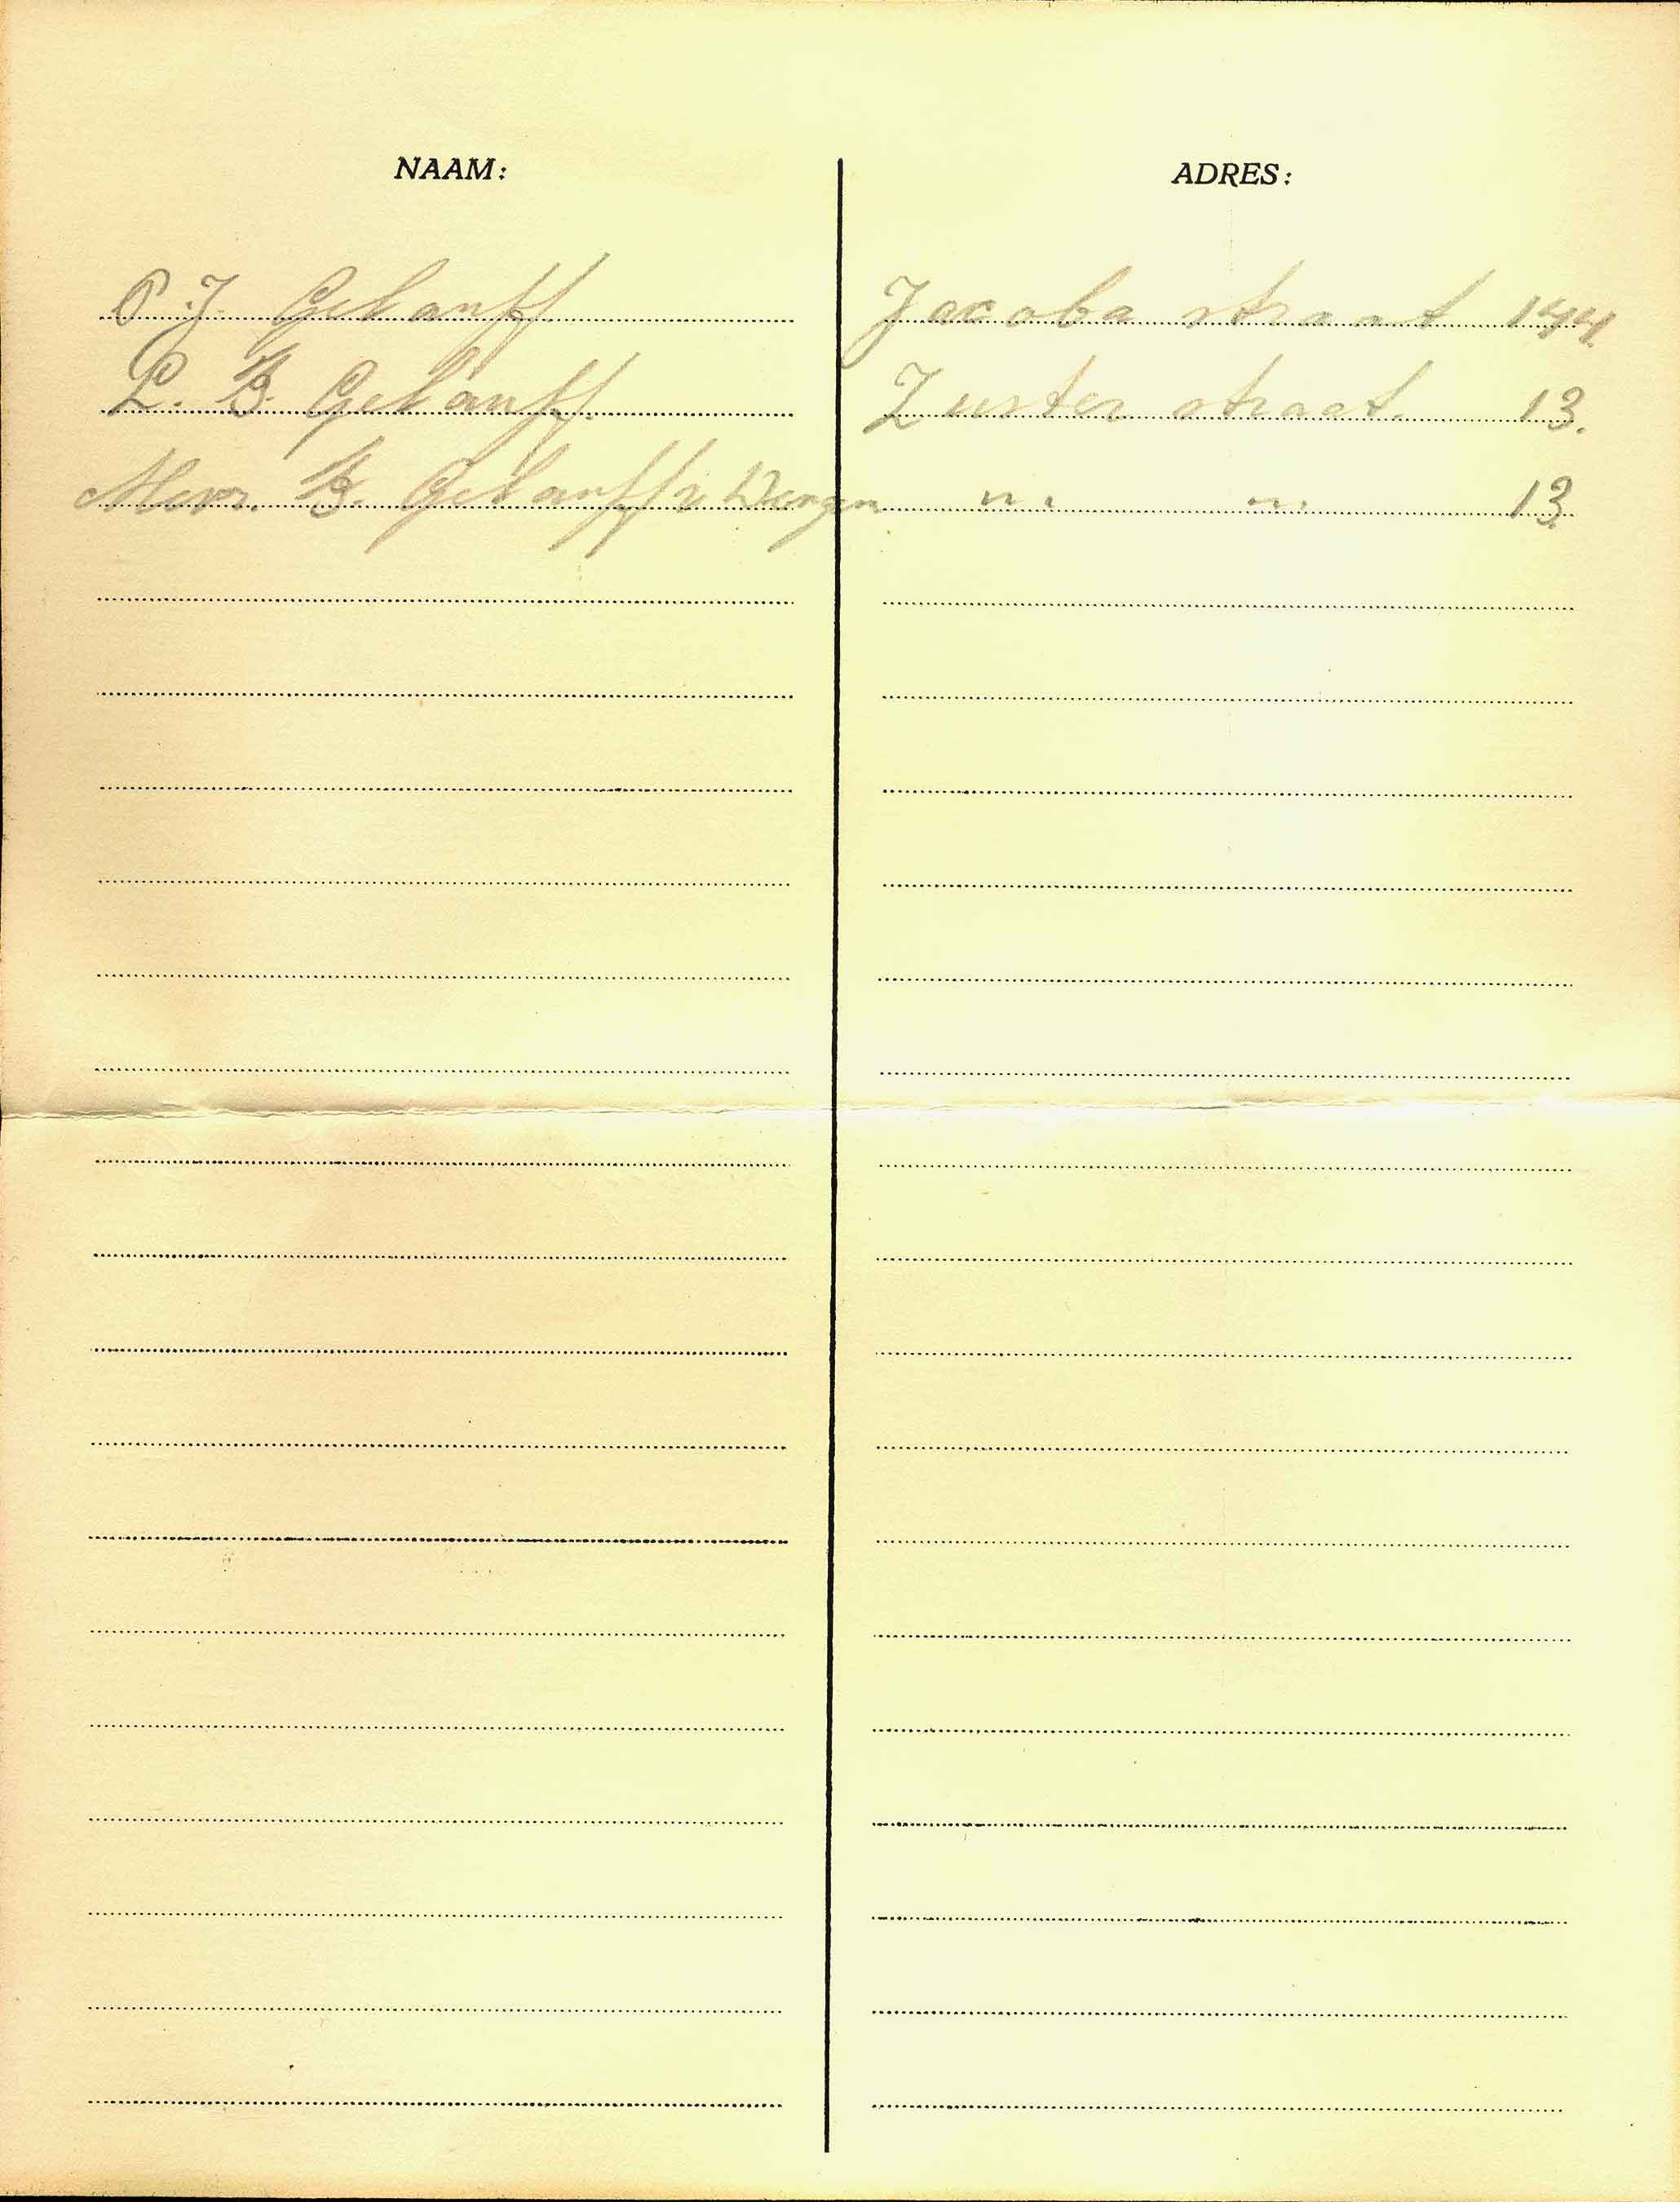 NAAM: ADRES:
P. J. Gelauff Jacoba straat 144.
L. B. Gelauff. Zuster straat. 13.
Mevr. B. Gelauff v Dongen " " 13.